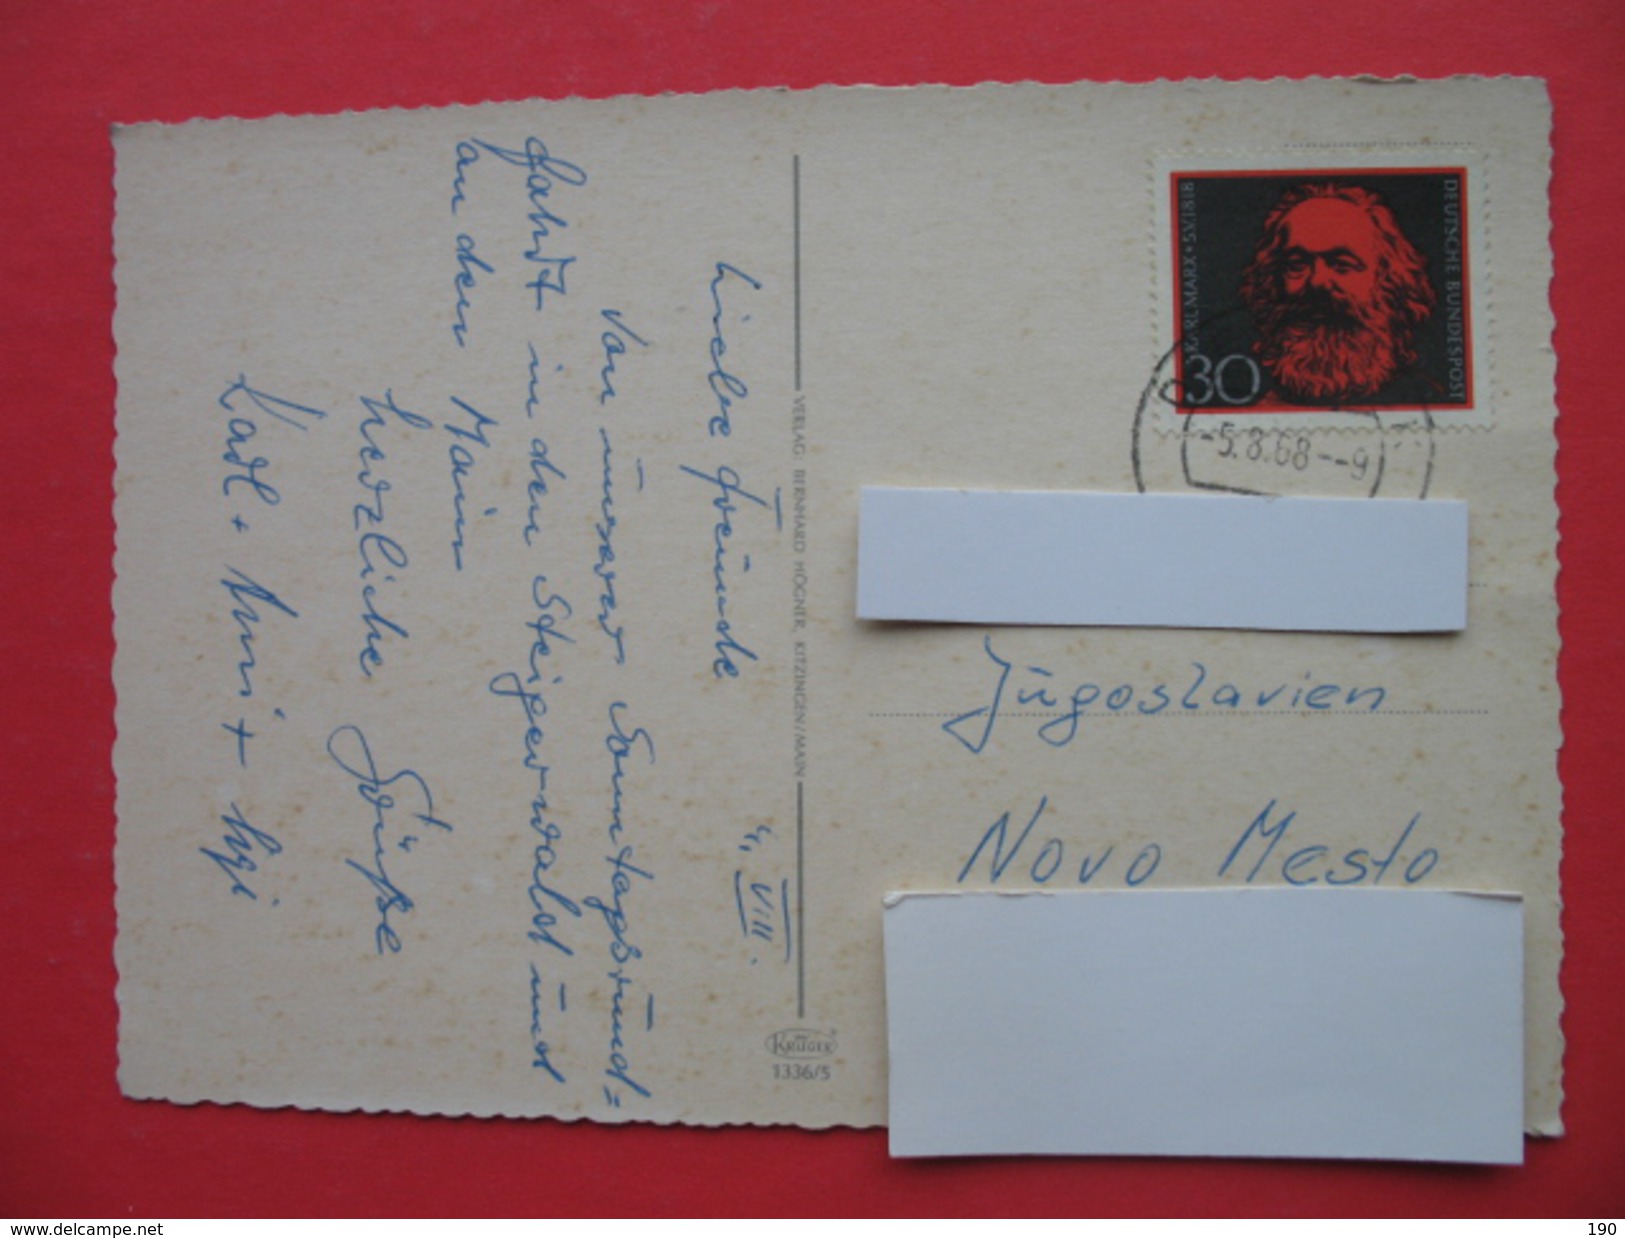 4. VIII.
Liebe Freunde
Von unserer Sonntagsrund=
fahrt in den Steigerwald und
an den Main
herzliche Grüße
Karl + Anni +
VERLAG: BERNHARD HÖGNER, KITZINGEN/MAIN
KRÜGER
1336/5
KARL MARX • 5.V.1818
DEUTSCHE BUNDESPOST
30
-5.8.68--9
Jugoslavien
Novo Mesto
delcampe.net
190